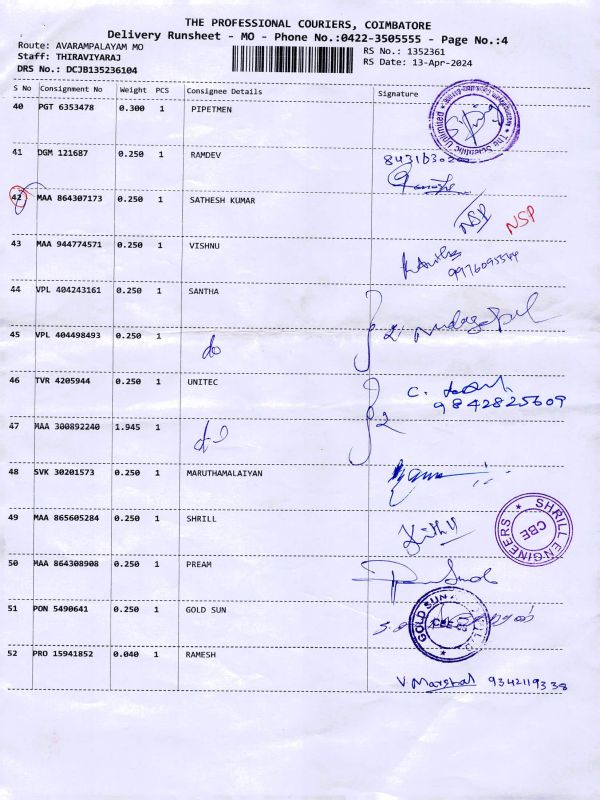 THE PROFESSIONAL COURIERS, COIMBATORE
Delivery Runsheet - MO - Phone No.:0422-3505555 - Page No.:4
Route: AVARAMPALAYAM MO
RS No.: 1352361
Staff: THIRAVIYARAJ
RS Date: 13-Apr-2024
DRS No.: DCJB135236104
S No Consignment No Weight PCS Consignee Details Signature
40 PGT 6353478 0.300 1 PIPETMEN
The Scientific Unlimited
41 DGM 121687 0.250 1 RAMDEV
42 MAA 864307173 0.250 1 SATHESH KUMAR
NSP NSP
43 MAA 944774571 0.250 1 VISHNU
44 VPL 404243161 0.250 1 SANTHA
45 VPL 404498493 0.250 1
do
46 TVR 4205944 0.250 1 UNITEC
9842825609
47 MAA 300892240 1.945 1
do
2
48 SVK 30201573 0.250 1 MARUTHAMALAIYAN
49 MAA 865605284 0.250 1 SHRILL
SHRILL ENGINEERS
CBE
50 MAA 864308908 0.250 1 PREAM
51 PON 5490641 0.250 1 GOLD SUN
GOLD SUN
52 PRO 15941852 0.040 1 RAMESH
V Marshal 9342119338